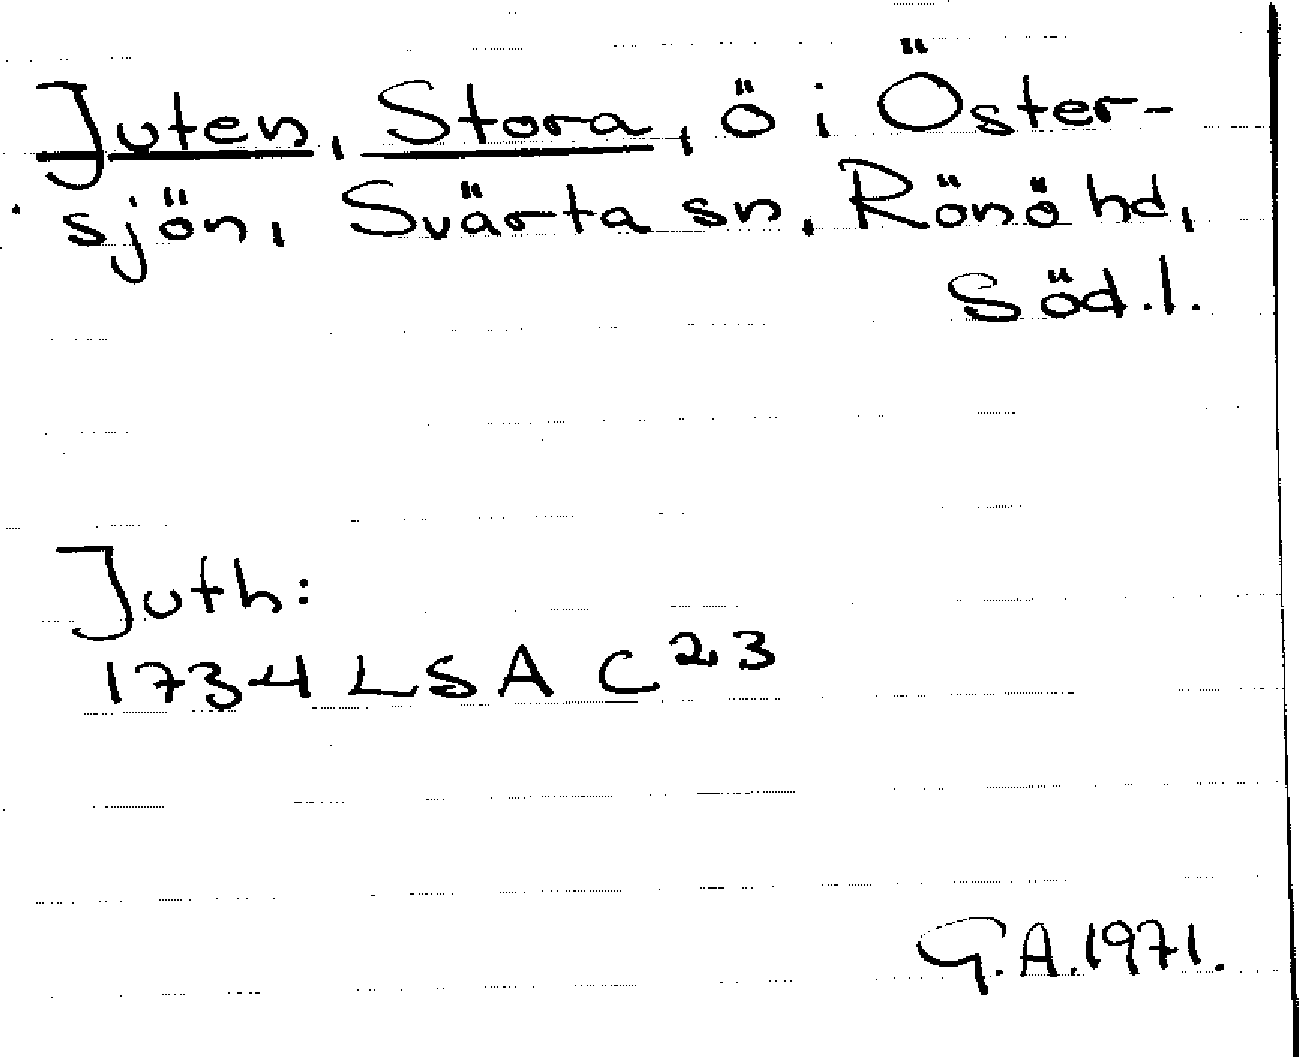 Juten, Stora, ö i Öster-
sjön, Svärta sn, Rönö hd,
Söd.l.
Juth:
1734 LSA C²3
G.A.1971.